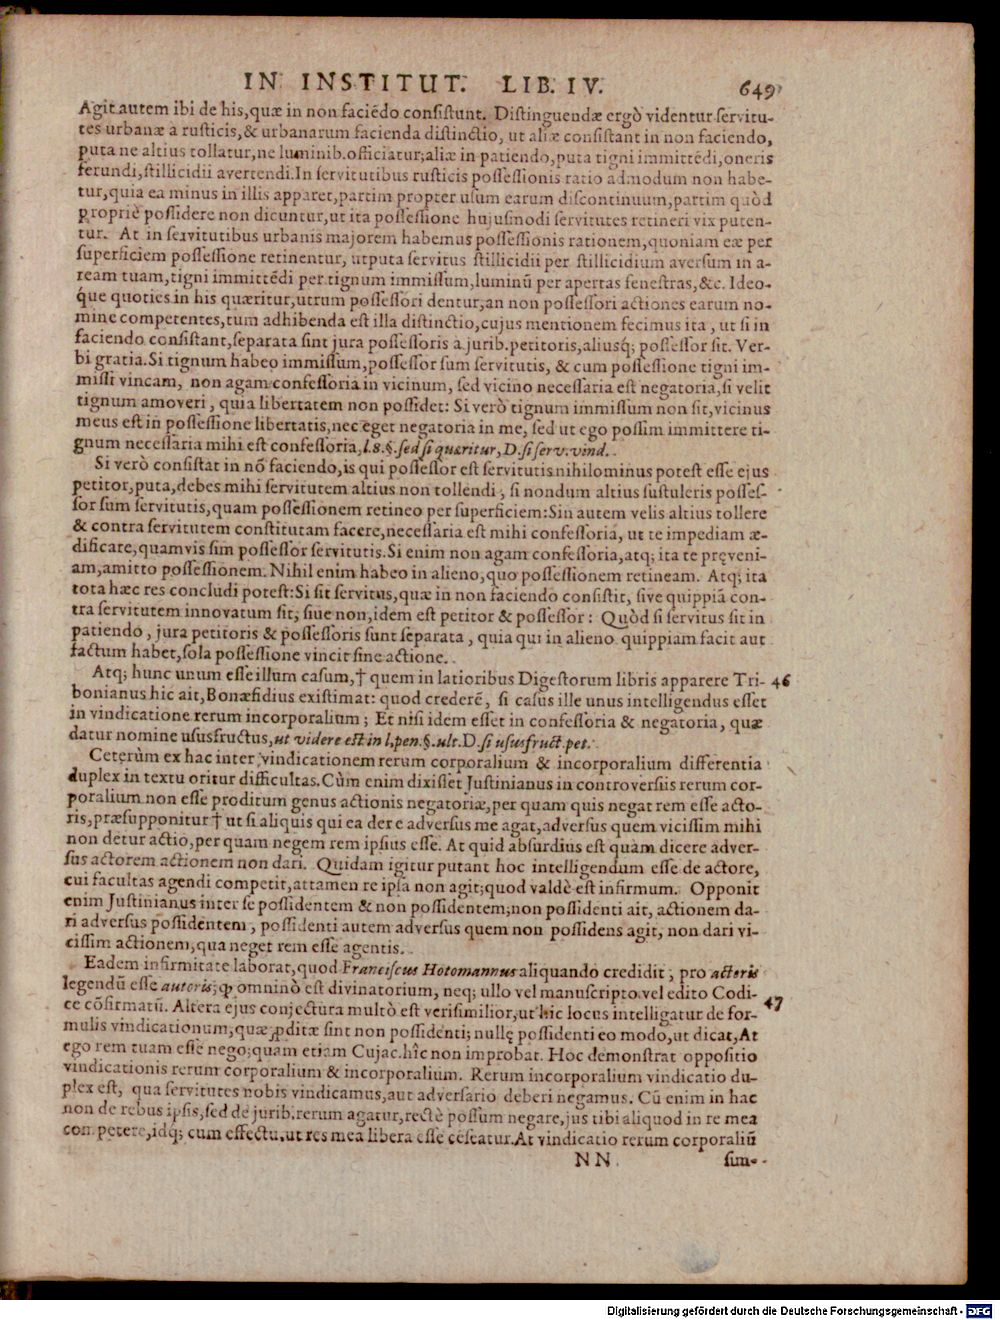 IN INSTITUT. LIB. IV. 649
Agit autem ibi de his, quæ in non faciẽdo consistunt. Distinguendæ ergò videntur servitu-
tes urbanæ a rusticis, & urbanarum facienda distinctio, ut aliæ consistant in non faciendo,
puta ne altius tollatur, ne luminib. officiatur; aliæ in patiendo, puta tigni immittẽdi, oneris
ferundi, stillicidii avertendi. In servitutibus rusticis possessionis ratio admodum non habe-
tur, quia ea minus in illis apparet, partim propter usum earum discontinuum, partim quòd
propriè possidere non dicuntur, ut ita possessione hujusmodi servitutes retineri vix puten-
tur. At in servitutibus urbanis majorem habemus possessionis rationem, quoniam eæ per
superficiem possessione retinentur, utputa servitus stillicidii per stillicidium aversum in a-
ream tuam, tigni immittẽdi per tignum immissum, luminũ per apertas fenestras, &c. Ideo-
que quoties in his quæritur, utrum possessori dentur, an non possessori actiones earum no-
mine competentes, tum adhibenda est illa distinctio, cujus mentionem fecimus ita, ut si in
faciendo consistant, separata sint jura possessoris a jurib. petitoris, aliusq; possessor sit. Ver-
bi gratia. Si tignum habeo immissum, possessor sum servitutis, & cum possessione tigni im-
missi vincam, non agam confessoria in vicinum, sed vicino necessaria est negatoria, si velit
tignum amoveri, quia libertatem non possidet: Si verò tignum immissum non sit, vicinus
meus est in possessione libertatis, nec eget negatoria in me, sed ut ego possim immittere ti-
gnum necessaria mihi est confessoria, l. 8. §. sed si quæritur, D. si serv. vind.
Si verò consistat in nõ faciendo, is qui possessor est servitutis nihilominus potest esse ejus
petitor, puta, debes mihi servitutem altius non tollendi, si nondum altius sustuleris posses-
sor sum servitutis, quam possessionem retineo per superficiem: Sin autem velis altius tollere
& contra servitutem constitutam facere, necessaria est mihi confessoria, ut te impediam æ-
dificare, quamvis sim possessor servitutis. Si enim non agam confessoria, atq; ita te pręveni-
am, amitto possessionem. Nihil enim habeo in alieno, quo possessionem retineam. Atq; ita
tota hæc res concludi potest: Si sit servitus, quæ in non faciendo consistit, sive quippiã con-
tra servitutem innovatum sit, siue non, idem est petitor & possessor: Quòd si servitus sit in
patiendo, jura petitoris & possessoris sunt separata, quia qui in alieno quippiam facit aut
factum habet, sola possessione vincit sine actione.
Atq; hunc unum esse illum casum, † quem in latioribus Digestorum libris apparere Tri- 46
bonianus hic ait, Bonæfidius existimat: quod crederẽ, si casus ille unus intelligendus esset
in vindicatione rerum incorporalium; Et nisi idem esset in confessoria & negatoria, quæ
datur nomine ususfructus, ut videre est in l. pen. §. ult. D. si ususfruct. pet.
Ceterùm ex hac inter vindicationem rerum corporalium & incorporalium differentia
duplex in textu oritur difficultas. Cùm enim dixisset Justinianus in controversiis rerum cor-
poralium non esse proditum genus actionis negatoriæ, per quam quis negat rem esse acto-
ris, præsupponitur † ut si aliquis qui ea de re adversus me agat, adversus quem vicissim mihi
non detur actio, per quam negem rem ipsius esse. At quid absurdius est quàm dicere adver-
sus actorem actionem non dari. Quidam igitur putant hoc intelligendum esse de actore,
cui facultas agendi competit, attamen re ipsa non agit; quod valdè est infirmum. Opponit
enim Justinianus inter se possidentem & non possidentem; non possidenti ait, actionem da-
ri adversus possidentem, possidenti autem adversus quem non possidens agit, non dari vi-
cissim actionem, qua neget rem esse agentis.
Eadem infirmitate laborat, quod Franciscus Hotomannus aliquando credidit, pro actoris
legendũ esse autoris; ꝙ omninò est divinatorium, neq; ullo vel manuscripto vel edito Codi-
ce cõfirmatũ. Altera ejus conjectura multò est verisimilior, ut hic locus intelligatur de for- 47
mulis vindicationum, quæ ꝓditæ sint non possidenti; nullę possidenti eo modo, ut dicat, At
ego rem tuam esse nego; quam etiam Cujac. hîc non improbat. Hoc demonstrat oppositio
vindicationis rerum corporalium & incorporalium. Rerum incorporalium vindicatio du-
plex est, qua servitutes nobis vindicamus, aut adversario deberi negamus. Cũ enim in hac
non de rebus ipsis, sed de jurib. rerum agatur, rectè possum negare, jus tibi aliquod in re mea
competere, idq; cum effectu, ut res mea libera esse cẽseatur. At vindicatio rerum corporaliũ
NN sim-
Digitalisierung gefördert durch die Deutsche Forschungsgemeinschaft - DFG